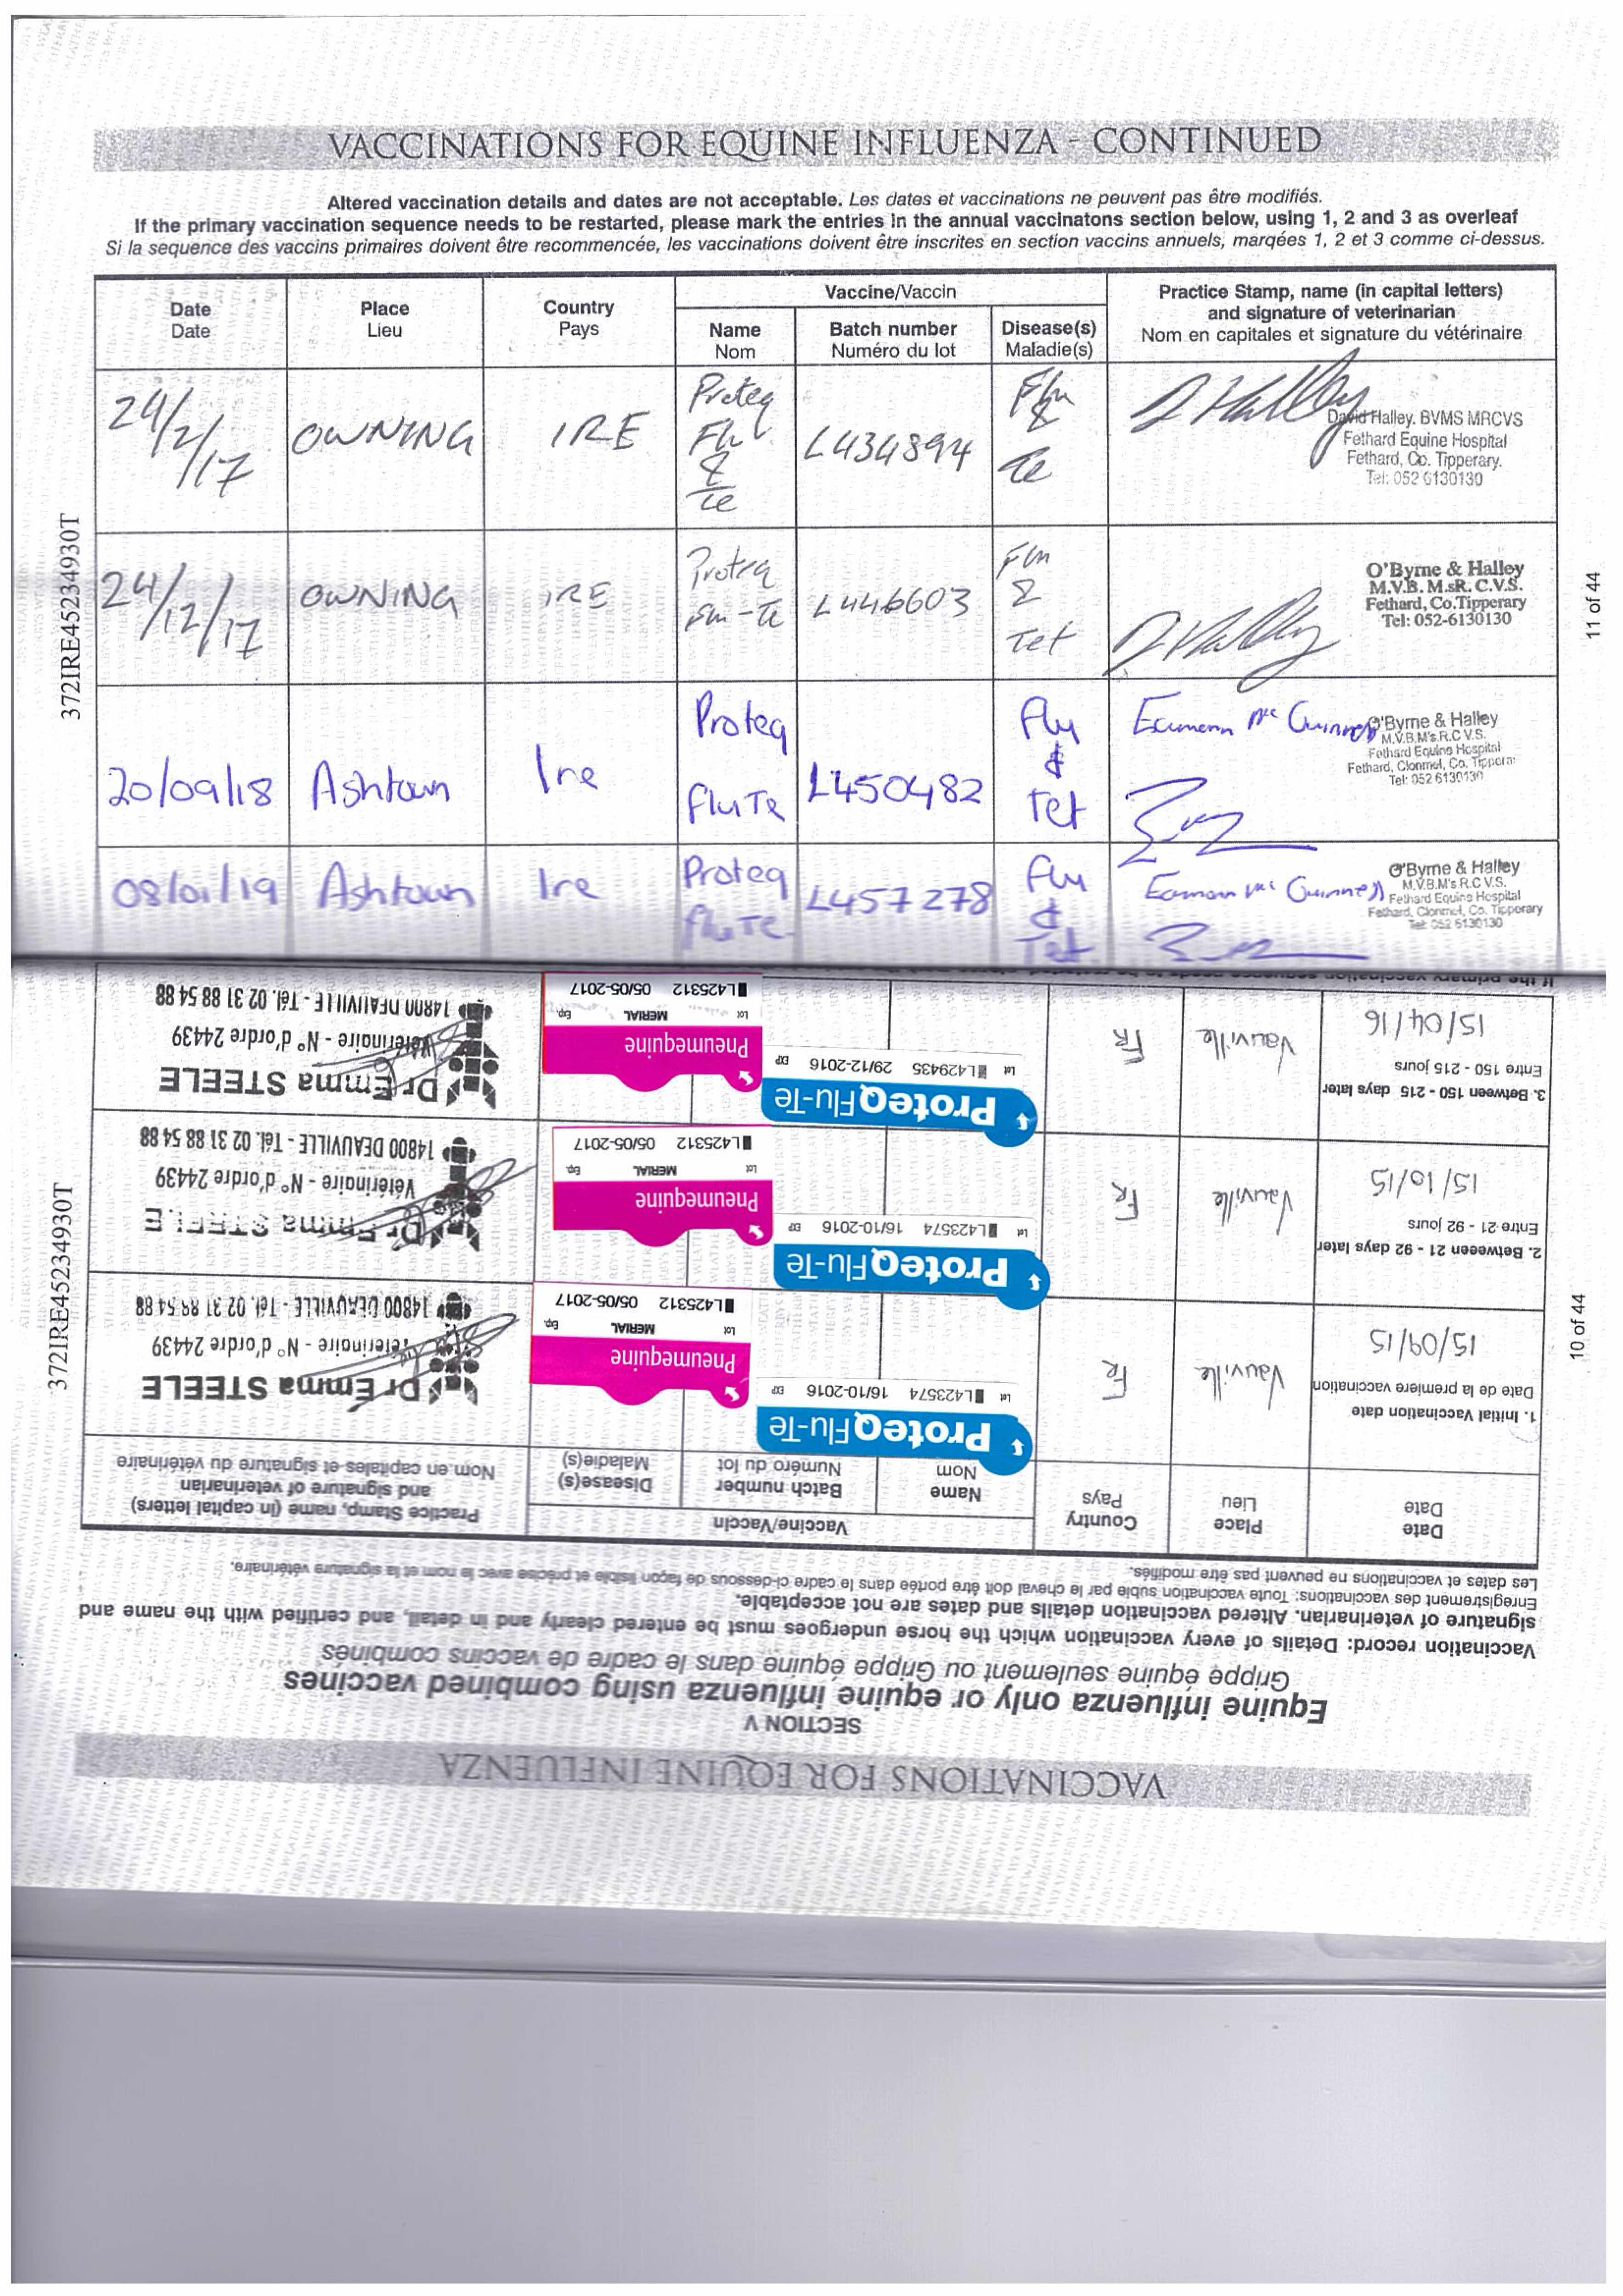 VACCINATIONS FOR EQUINE INFLUENZA - CONTINUED
Altered vaccination details and dates are not acceptable. Les dates et vaccinations ne peuvent pas être modifiés.
If the primary vaccination sequence needs to be restarted, please mark the entries in the annual vaccinatons section below, using 1, 2 and 3 as overleaf
Si la sequence des vaccins primaires doivent être recommencée, les vaccinations doivent être inscrites en section vaccins annuels, marqées 1, 2 et 3 comme ci-dessus.
Date
Date
Place
Lieu
Country
Pays
Vaccine/Vaccin
Name
Nom
Batch number
Numéro du lot
Disease(s)
Maladie(s)
Practice Stamp, name (in capital letters)
and signature of veterinarian
Nom en capitales et signature du vétérinaire
24/2/17
OWNING
IRE
Proteq
Flu
&
Te
L434894
Flu
&
Te
D Halley
David Halley. BVMS MRCVS
Fethard Equine Hospital
Fethard, Co. Tipperary.
Tel: 052 6130130
24/12/17
OWNING
IRE
Proteq
Flu-Te
L446603
Flu
&
Tet
D Halley
O'Byrne & Halley
M.V.B. M.sR.C.V.S.
Fethard, Co.Tipperary
Tel: 052-6130130
20/09/18
Ashtown
Ire
Proteq
FluTe
L450482
Flu
&
Tet
Eamonn Mc Guinness
O'Byrne & Halley
M.V.B.M's.R.C.V.S.
Fethard Equine Hospital
Fethard, Clonmel, Co. Tipperar
Tel: 052 6130130
08/01/19
Ashtown
Ire
Proteq
fluTe
L457278
Flu
&
Tet
Eamonn Mc Guinness
O'Byrne & Halley
M.V.B.M's R.C.V.S.
Fethard Equine Hospital
Fethard, Clonmel, Co. Tipperary
Tel: 052 6130130
372IRE45234930T
11 of 44
VACCINATIONS FOR EQUINE INFLUENZA
SECTION V
Equine influenza only or equine influenza using combined vaccines
Grippe équine seulement ou Grippe équine dans le cadre de vaccins combinés
Vaccination record: Details of every vaccination which the horse undergoes must be entered clearly and in detail, and certified with the name and
signature of veterinarian. Altered vaccination details and dates are not acceptable.
Enregistrement des vaccinations: Toute vaccination subie par le cheval doit être portée dans le cadre ci-dessous de façon lisible et précise avec le nom et la signature vétérinaire.
Les dates et vaccinations ne peuvent pas être modifiés.
Date
Date
Place
Lieu
Country
Pays
Vaccine/Vaccin
Name
Nom
Batch number
Numéro du lot
Disease(s)
Maladie(s)
Practice Stamp, name (in capital letters)
and signature of veterinarian
Nom en capitales et signature du vétérinaire
1. Initial Vaccination date
Date de la premiere vaccination
15/09/15
Vauville
FR
ProteqFlu-Te
Lot L423574 16/10-2016 EXP
Pneumequine
Lot MERIAL Exp.
L425312 05/05-2017
Dr Emma STEELE
Vétérinaire - N° d'ordre 24439
14800 DEAUVILLE - Tél. 02 31 88 54 88
2. Betweeen 21 - 92 days later
Entre 21 - 92 jours
15/10/15
Vauville
FR
ProteqFlu-Te
Lot L423574 16/10-2016 EXP
Pneumequine
Lot MERIAL Exp.
L425312 05/05-2017
Dr Emma STEELE
Vétérinaire - N° d'ordre 24439
14800 DEAUVILLE - Tél. 02 31 88 54 88
3. Between 150 - 215 days later
Entre 150 - 215 jours
15/04/16
Vauville
FR
ProteqFlu-Te
Lot L429435 29/12-2016 EXP
Pneumequine
Lot MERIAL Exp.
L425312 05/05-2017
Dr Emma STEELE
Vétérinaire - N° d'ordre 24439
14800 DEAUVILLE - Tél. 02 31 88 54 88
If the primary vaccination sequence needs to be
372IRE45234930T
10 of 44